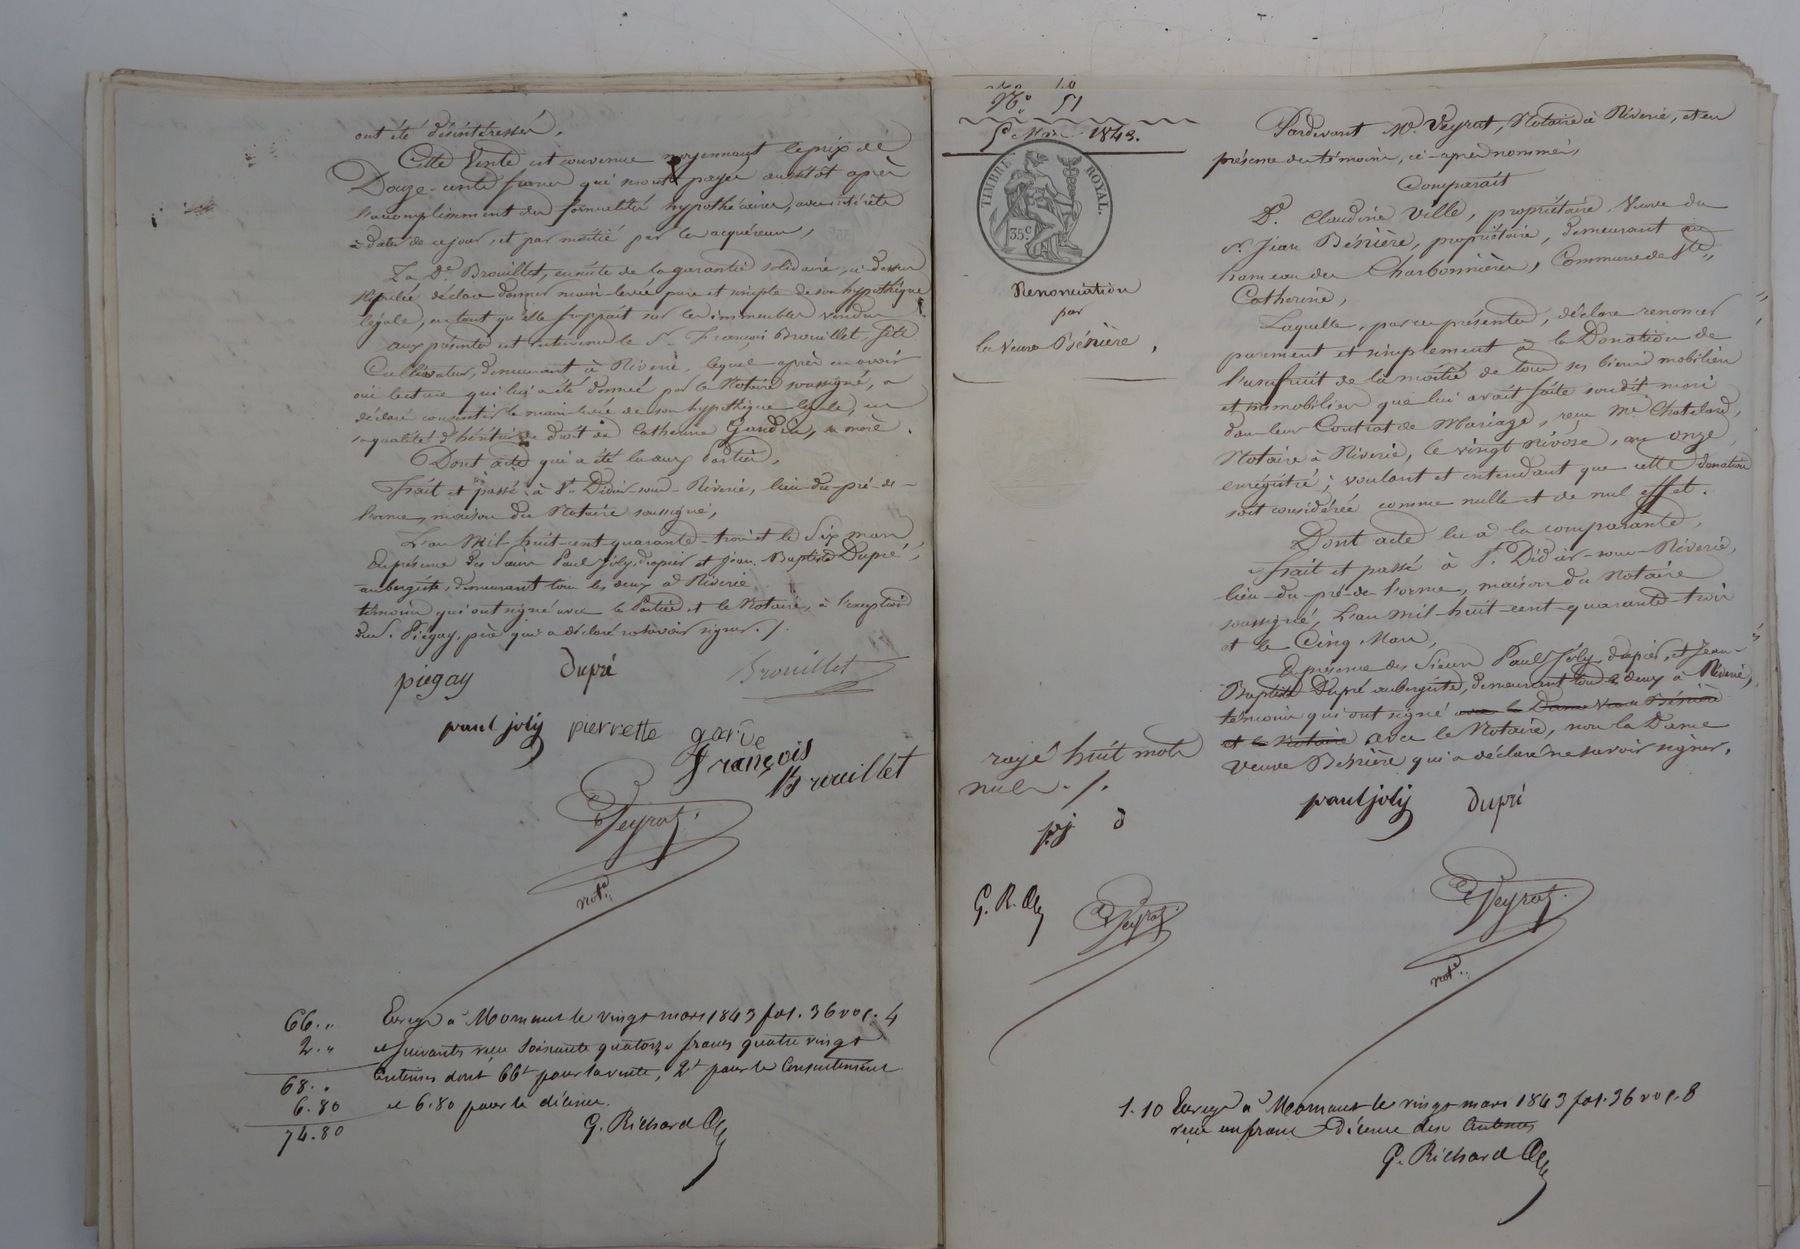 ont été désintéressés.
Cette Vente est convenue moyennant le prix de
Douze-cents francs qui seront payés aussitôt après
l'accomplissement des formalités hypothécaires, avec intérêts
à dater de ce jour, et par moitié par les acquéreurs,
La De. Brouillet, ensuite de la garantie solidaire ci-dessus
stipulée, déclare donner main-levée pure et simple de son hypothèque
légale, en tant qu'elle frappait sur les immeubles vendus
aux présentes est intervenu le Sr. François Brouillet, fils
Cultivateur, demeurant à Riverie, lequel après en avoir
oui lecture qui lui a été donnée par le Notaire soussigné, a
déclaré consentir la main levée de son hypothèque légale, en
sa qualité d'héritier de droit de Catherine Gaudin, sa mère.
Dont acte qui a été lu aux parties,
Fait et passé à St. Didier-sous-Riverie, lieu-du-pré-de-
l'orme, maison du Notaire soussigné,
L'an Mil-huit-cent-quarante-trois et le Six mars
En présence des Sieurs Paul Joly, drapier et Jean-Baptiste Dupré,
aubergiste, demeurant tous les deux à Riverie
témoins qui ont signé avec les Parties et le Notaire, à l'exception
du S. Piegay, père qui a déclaré ne savoir signer. /.
piegay dupré Brouillet
paul joly pierrette
françois
Brouillet
Peyrat
notre.
66. „ Enregé à Mornant le vingt mars 1843 fol. 36 vo c. 4
2. „ et suivants reçu soixante quatorze francs quatre vingt
68. „ Centimes dont 66f pour la vente, 2f pour le Consentement
6.80 et 6.80 pour le décime.
74.80 G. Richard
No. 51
5 Mars 1843.
TIMBRE ROYAL.
35 c
Renonciation
par
la Veuve Bénière,
Pardevant Me. Peyrat, Notaire à Riverie, et en
présence des témoins, ci-après nommés,
Comparait
De. Claudine Ville, propriétaire Veuve du
Sr. Jean Bénière, propriétaire, demeurant au
hameau des Charbonnières, Commune de Ste,,
Catherine,
Laquelle, par ces présentes, déclare renoncer
purement et simplement à la Donation de
l'usufruit de la moitié de tous ses biens mobiliers
et immobiliers que lui avait faite son dit mari
dans leur Contrat de Mariage, reçu Me Chatelard,
Notaire à Riverie, le vingt nivôse, an onze,
enrégistré; voulant et entendant que cette donation
soit considérée comme nulle et de nul effet.
Dont acte lu à la comparante,
Fait et passé à St. Didier-sous-Riverie,
lieu-du-pré-de l'orme, maison du Notaire
soussigné, L'an Mil-huit-cent-quarante-trois
et le Cinq Mars,
En présence des Sieurs Paul Joly, drapier, et Jean-
Baptiste Dupré aubergiste, demeurant tous les deux à Riverie,
témoins qui ont signé avec la Dame Veuve Bénière
et le Notaire avec le Notaire, non la Dame
Veuve Bénière qui a déclaré ne savoir signer.
rayé huit mots
nuls. /.
p.j d
G. R.
Peyrat
paul joly dupré
Peyrat
notre.
1.10 Enregé à Mornant le vingt mars 1843 fol. 36 vo c. 8
reçu un franc décime dix Centimes
G. Richard